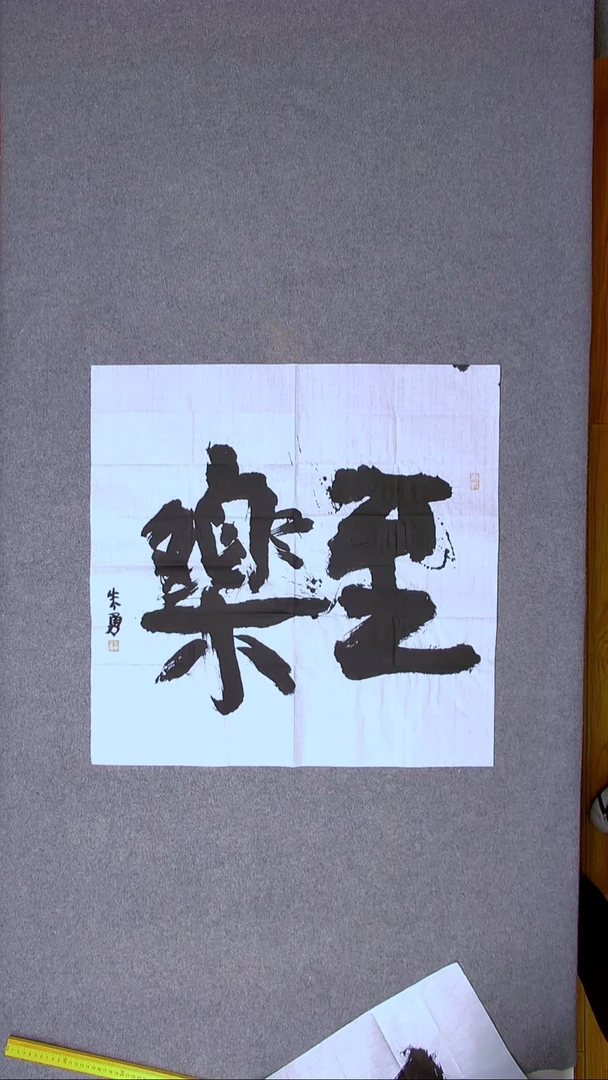 至樂
朱勇